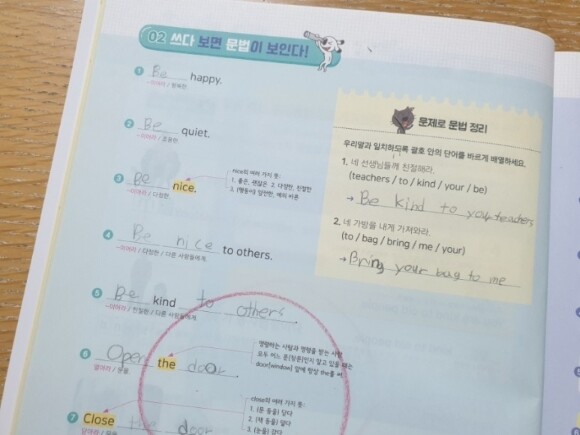 02 쓰다 보면 문법이 보인다!
1 Be happy.
~이어라 / 행복한
2 Be quiet.
~이어라 / 조용한
3 Be nice.
~이어라 / 다정한
nice의 여러 가지 뜻:
1. 좋은, 괜찮은 2. 다정한, 친절한
3. (행동이) 얌전한, 예의 바른
4 Be nice to others.
~이어라 / 다정한 / 다른 사람들에게.
5 Be kind to others.
~이어라 / 친절한 / 다른 사람들에게.
6 Open the door.
열어라 / 문을.
명령하는 사람과 명령을 받는 사람
모두 어느 문(창문)인지 알고 있을 때는
door[window] 앞에 항상 the를 써.
7 Close the door
닫아라 / 문을
close의 여러 가지 뜻:
1. (문 등을) 닫다
2. (책 등을) 덮다
3. (눈을) 감다
문제로 문법 정리
우리말과 일치하도록 괄호 안의 단어를 바르게 배열하세요.
1. 네 선생님들께 친절해라.
(teachers / to / kind / your / be)
→ Be kind to your teachers
2. 네 가방을 내게 가져와라.
(to / bag / bring / me / your)
→ Bring your bag to me